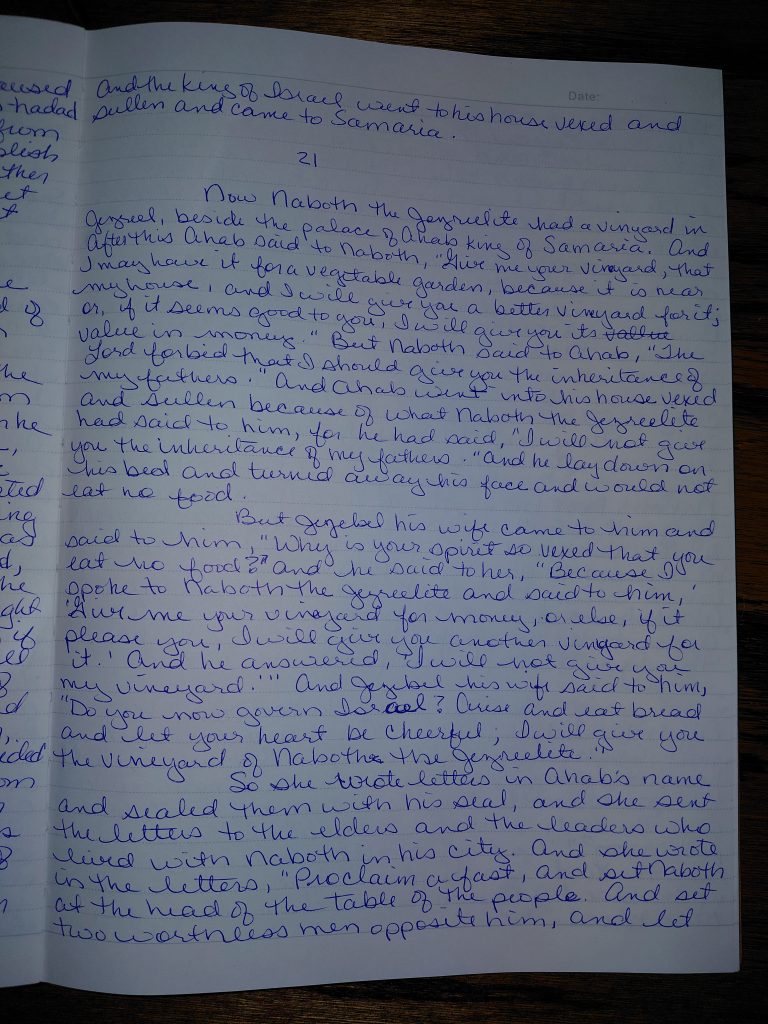 Date:
And the king of Israel went to his house vexed and
sullen and came to Samaria.
21
Now Naboth the Jezreelite had a vinyard in
Jezreel, beside the palace of Ahab king of Samaria. And
after this Ahab said to Naboth, "Give me your vinyard, that
I may have it for a vegetable garden, because it is near
my house, and I will give you a better vineyard for it;
or, if it seems good to you, I will give you its value
value in money." But Naboth said to Ahab, "The
Lord forbid that I should give you the inheritance of
my fathers." And Ahab went into his house vexed
and sullen because of what Naboth the Jezreelite
had said to him, for he had said, "I will not give
you the inheritance of my fathers." And he lay down on
his bed and turned away his face and would not
eat no food.
But Jezebel his wife came to him and
said to him, "Why is your spirit so vexed that you
eat no food?" And he said to her, "Because I
spoke to Naboth the Jezreelite and said to him,
'Give me your vineyard for money, or else, if it
please you, I will give you another vinyard for
it.' And he answered, 'I will not give you
my vineyard.'" And Jezebel his wife said to him,
"Do you now govern Israel? Arise and eat bread
and let your heart be cheerful; I will give you
the vineyard of Naboth the Jezreelite."
So she wrote letters in Ahab's name
and sealed them with his seal, and she sent
the letters to the elders and the leaders who
lived with Naboth in his city. And she wrote
in the letters, "Proclaim a fast, and set Naboth
at the head of the table of the people. And set
two worthless men opposite him, and let